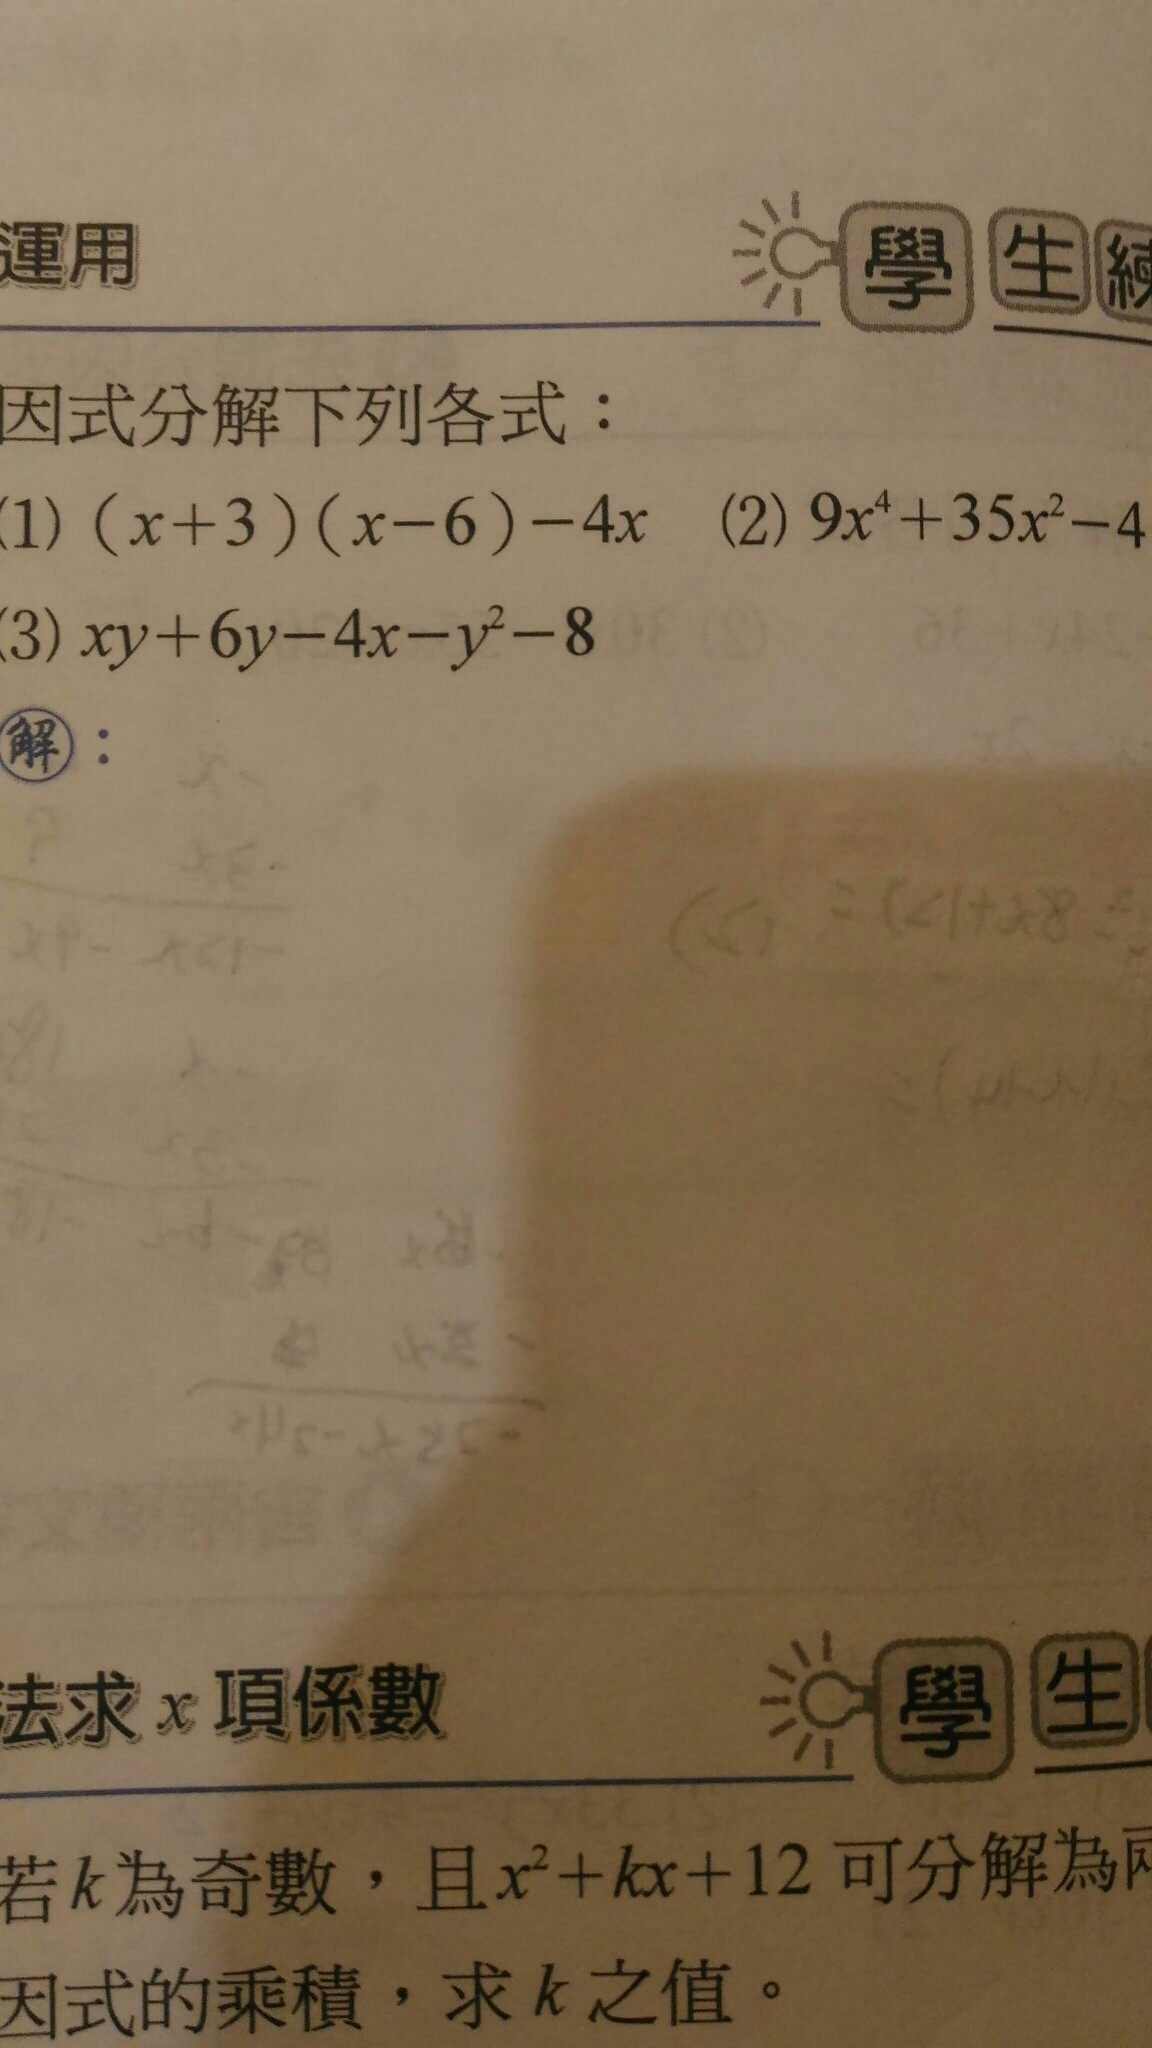 運用
學生練
因式分解下列各式：
(1) (x+3)(x−6)−4x (2) 9x⁴+35x²−4
(3) xy+6y−4x−y²−8
解：
法求 x 項係數
學生
若 k 為奇數，且 x²+kx+12 可分解為兩
因式的乘積，求 k 之值。